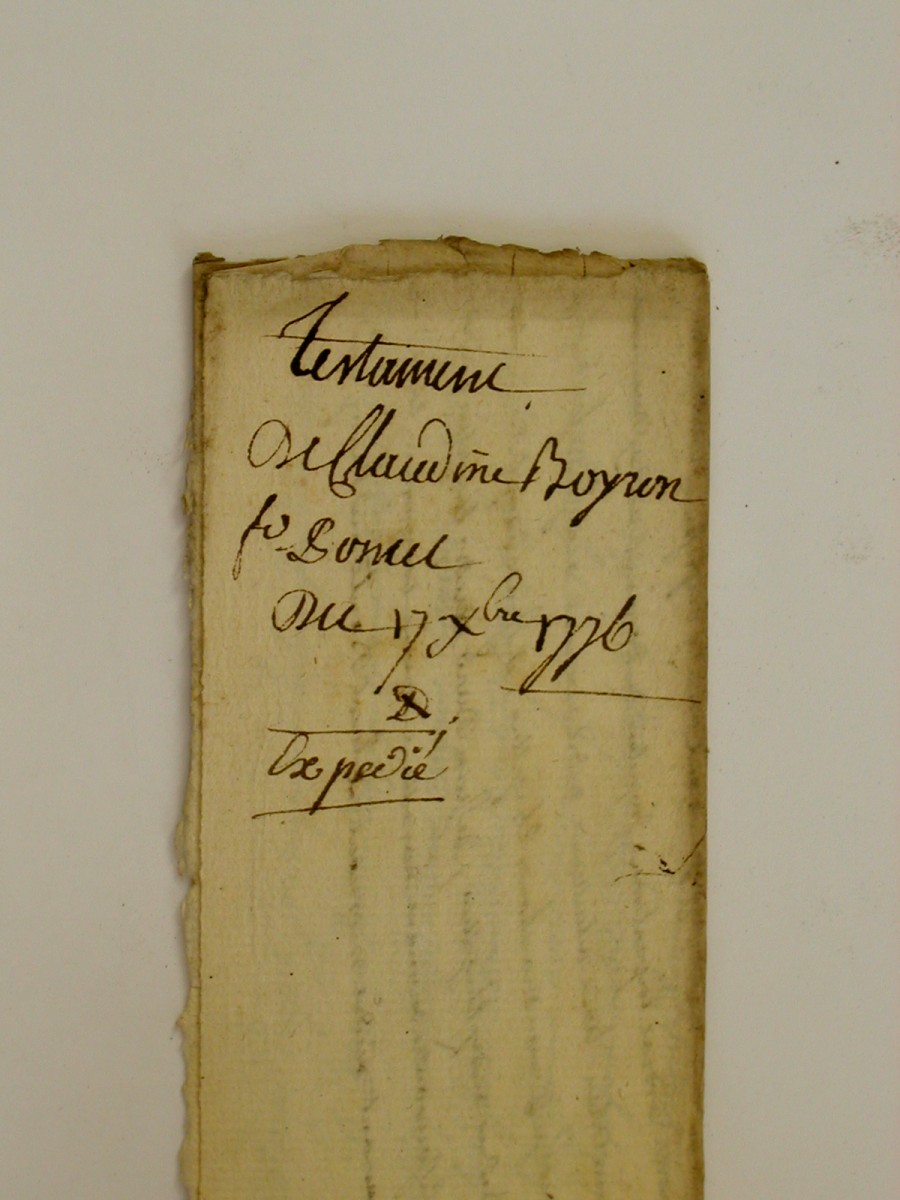 Testament
De Claudine Boyron
fe Bonnet
Du 17 Xbre 1776
D
Expedié